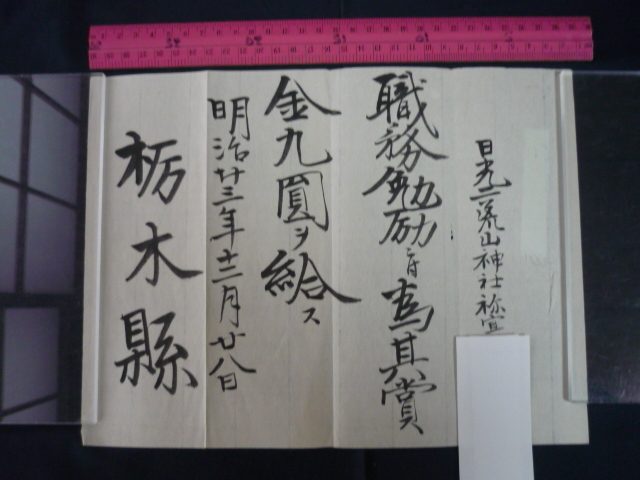 日光二荒山神社祢宜
職務勉励ニ付為其賞
金九圓ヲ給ス
明治廿三年十二月廿八日
栃木縣